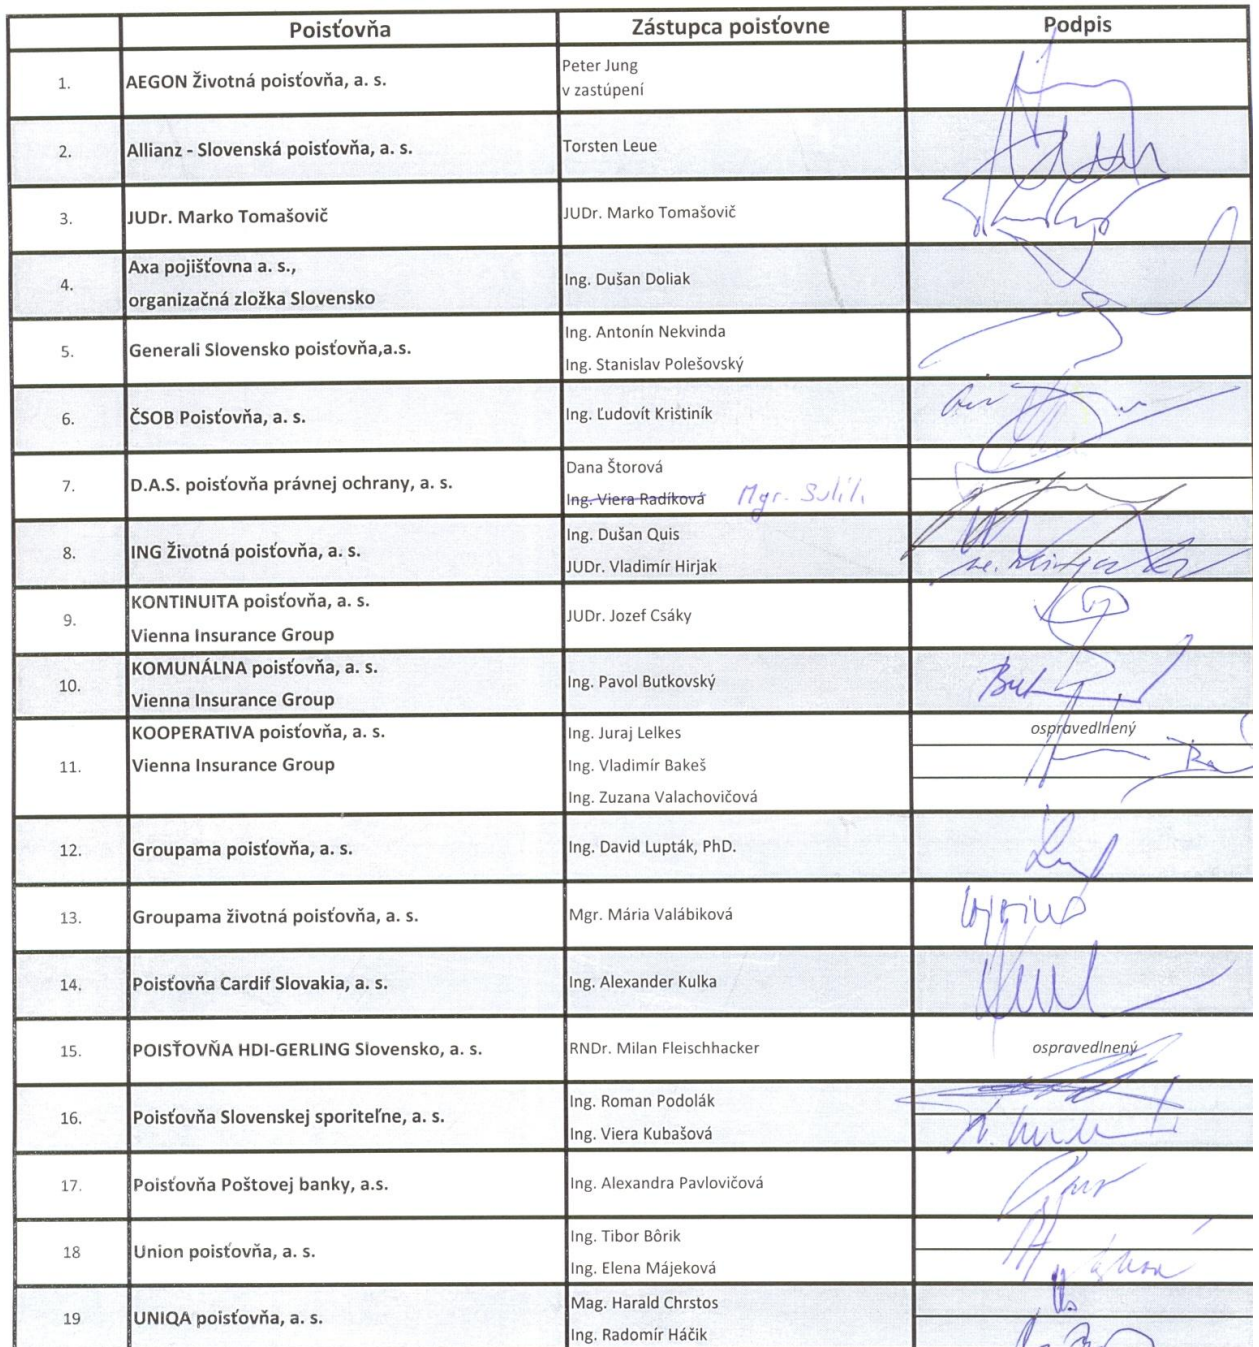 Poisťovňa Zástupca poisťovne Podpis
1. AEGON Životná poisťovňa, a. s. Peter Jung
v zastúpení
2. Allianz - Slovenská poisťovňa, a. s. Torsten Leue
3. JUDr. Marko Tomašovič JUDr. Marko Tomašovič
4. Axa pojišťovna a. s.,
organizačná zložka Slovensko
Ing. Dušan Doliak
5. Generali Slovensko poisťovňa,a.s. Ing. Antonín Nekvinda
Ing. Stanislav Polešovský
6. ČSOB Poisťovňa, a. s. Ing. Ľudovít Krištiník
7. D.A.S. poisťovňa právnej ochrany, a. s. Dana Štorová
Ing. Viera Radíková Mgr.
8. ING Životná poisťovňa, a. s. Ing. Dušan Quis
JUDr. Vladimír Hirjak
9. KONTINUITA poisťovňa, a. s.
Vienna Insurance Group
JUDr. Jozef Csáky
10. KOMUNÁLNA poisťovňa, a. s.
Vienna Insurance Group
Ing. Pavol Butkovský
11. KOOPERATIVA poisťovňa, a. s.
Vienna Insurance Group
Ing. Juraj Lelkes ospravedlnený
Ing. Vladimír Bakeš
Ing. Zuzana Valachovičová
12. Groupama poisťovňa, a. s. Ing. David Lupták, PhD.
13. Groupama životná poisťovňa, a. s. Mgr. Mária Valábiková
14. Poisťovňa Cardif Slovakia, a. s. Ing. Alexander Kulka
15. POISŤOVŇA HDI-GERLING Slovensko, a. s. RNDr. Milan Fleischhacker ospravedlnený
16. Poisťovňa Slovenskej sporiteľne, a. s. Ing. Roman Podolák
Ing. Viera Kubašová
17. Poisťovňa Poštovej banky, a.s. Ing. Alexandra Pavlovičová
18 Union poisťovňa, a. s. Ing. Tibor Bôrik
Ing. Elena Májeková
19 UNIQA poisťovňa, a. s. Mag. Harald Chrstos
Ing. Radomír Háčik